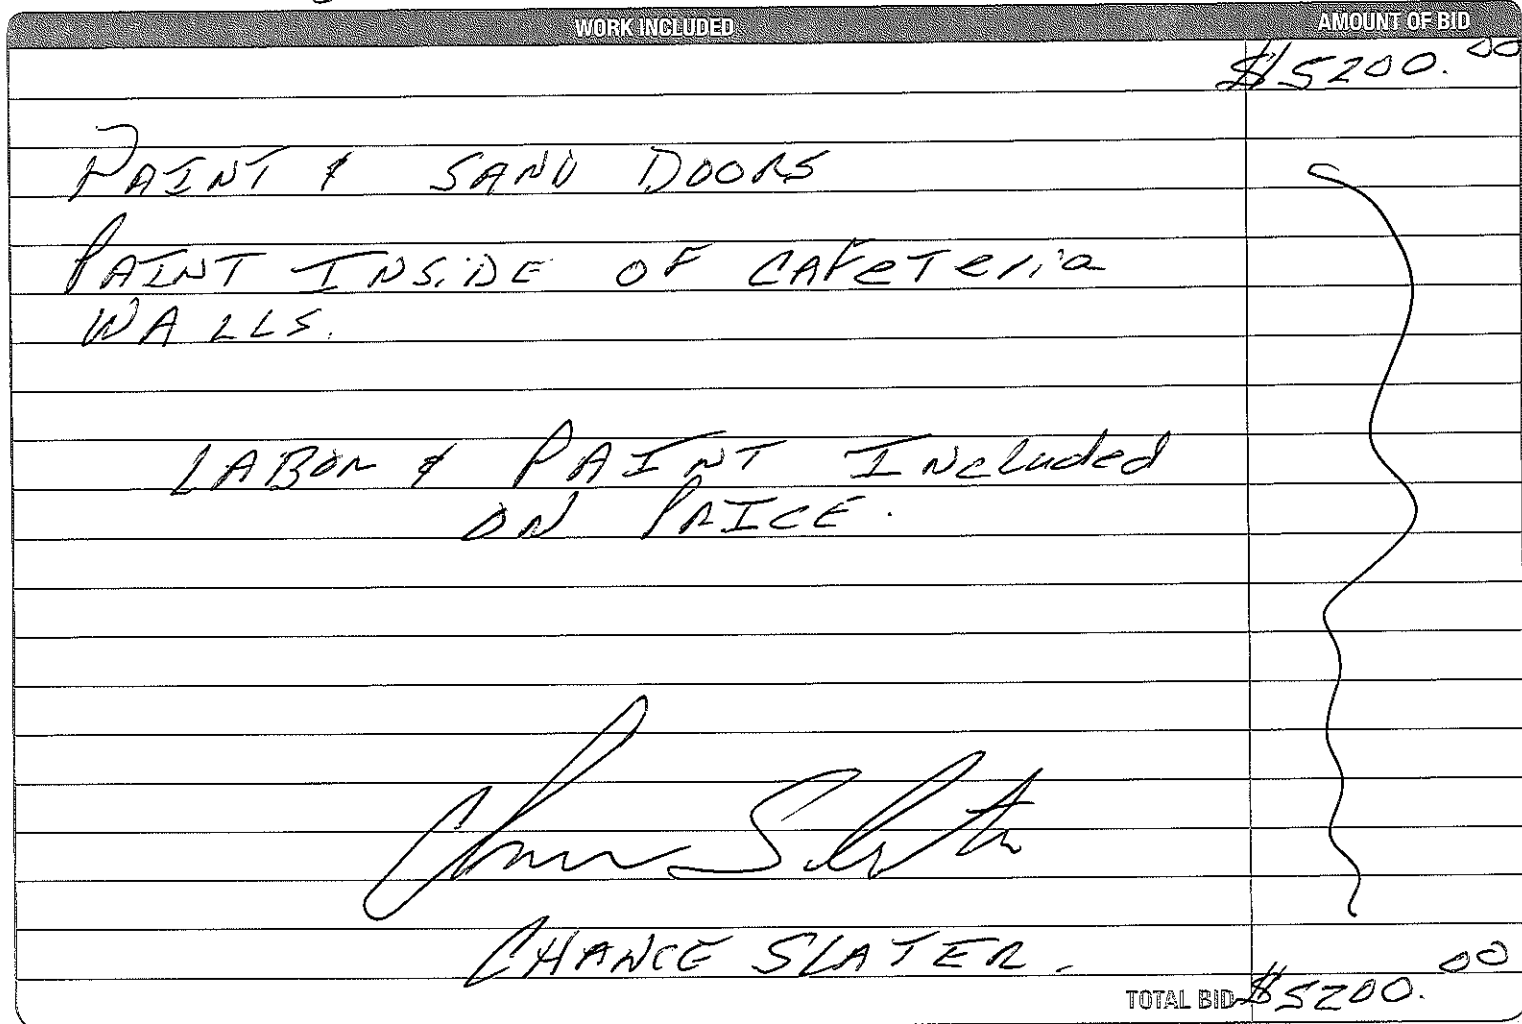 WORK INCLUDED AMOUNT OF BID
$5200.00
PAINT & SAND DOORS
PAINT INSIDE OF CAFeTeria
WALLS.
LABOR & PAINT INcluded
ON PRICE.
Chance Slater
CHANCE SLATER.
TOTAL BID $5200.00